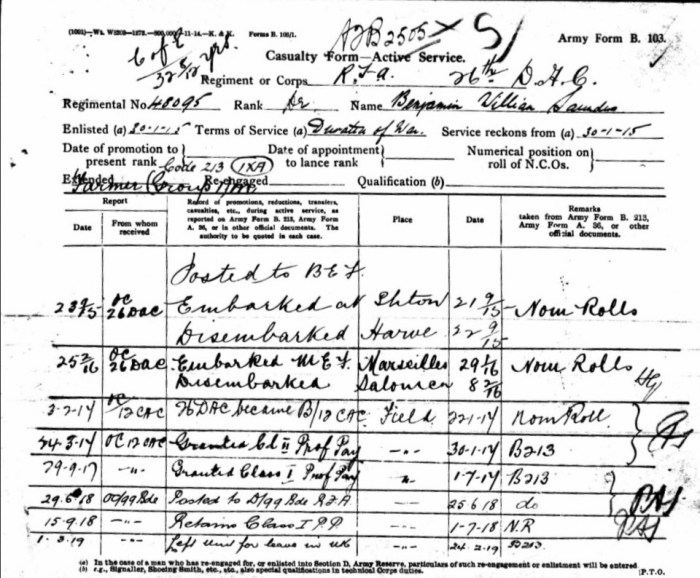 (1091)-Wt. W2209-1878.-900,000-11-14.-K. & K. Forms B. 103/1.
AFB2505 X
C of E
32 5/12 yrs.
Army Form B. 103.
Casualty Form—Active Service.
Regiment or Corps R.F.A. 26th D.A.C.
Regimental No. 48095 Rank Dr Name Benjamin Villian
Enlisted (a) 20-1-15 Terms of Service (a) Duration of War. Service reckons from (a) 20-1-15
Date of promotion to present rank
Date of appointment to lance rank
Numerical position on roll of N.C.Os.
Code 213 (1XA)
Extended Re-engaged Qualification (b)
Farmer (Group
Report
Date
From whom received
Record of promotions, reductions, transfers, casualties, etc., during active service, as reported on Army Form B. 213, Army Form A. 36, or in other official documents. The authority to be quoted in each case.
Place
Date
Remarks
taken from Army Form B. 213, Army Form A. 36, or other official documents.
Posted to B E F.
23 9/15 OC 26 DAC Embarked at Shton 21 9/15 Nom Rolls
Disembarked Harve 22 9/15
25 2/16 OC 26 DAC Embarked M.E.F. Marseilles 29 1/16 Nom Rolls
Disembarked Salonica 8 2/16
3-2-17 OC/12 CAC 26 DAC became B/12 CAC. Field 22-1-17 Nom Roll
24-3-17 OC 12 CAC Granted Cl II Prof Pay -"- 30-1-17 B213
29-9-17 -"- Granted Class I Prof Pay " 1-7-17 B213
29.6.18 OC/99 Bde Posted to D/99 Bde RFA -"- 25 6 18 do
15.9.18 -"- Retains Class I P.P -"- 1-7-18 N.R
1-3-19 -"- Left Unit for leave in UK -"- 24.2.19 B213.
(a) In the case of a man who has re-engaged for, or enlisted into Section D, Army Reserve, particulars of such re-engagement or enlistment will be entered
(b) e.g., Signaller, Shoeing Smith, etc., etc., also special qualifications in technical Corps duties.
[P.T.O.